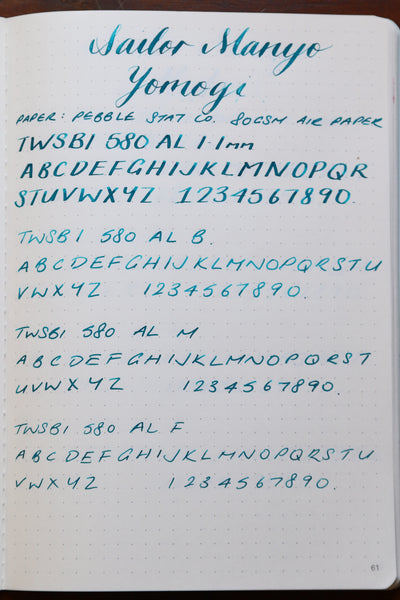 Sailor Manyo
Yomogi
PAPER: PEBBLE STAT CO. 80GSM AIR PAPER
TWSBI 580 AL 1.1mm
ABCDEFGHIJKLMNOPQR
STUVWXYZ 1234567890.
TWSBI 580 AL B.
ABCDEFGHIJKLMNOPQRSTU
VWXYZ 1234567890.
TWSBI 580 AL M
ABCDEFGHIJKLMNOPQRST
UVWXYZ 1234567890.
TWSBI 580 AL F
ABCDEFGHIJKLMNOPQRSTU
VWXYZ 1234567890.
61